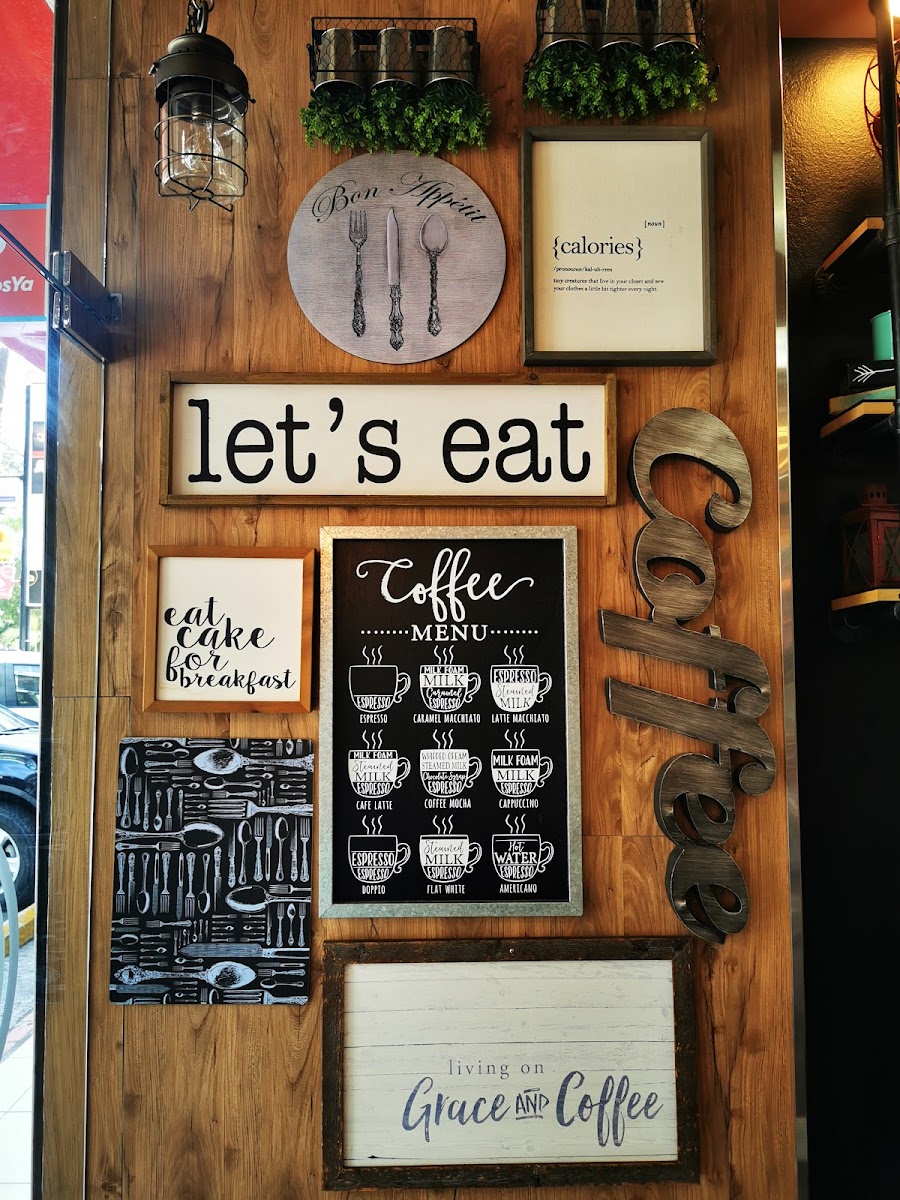 osYa
Bon Appétit
[noun]
{calories}
/pronounce/kal-uh-rees
tiny creatures that live in your closet and sew
your clothes a little bit tighter every night.
let's eat
eat
cake
for
breakfast
Coffee
MENU
ESPRESSO
ESPRESSO
MILK FOAM
MILK
Caramel
ESPRESSO
CARAMEL MACCHIATO
ESPRESSO
Steamed
MILK
LATTE MACCHIATO
MILK FOAM
Steamed
MILK
ESPRESSO
CAFE LATTE
WHIPPED CREAM
STEAMED MILK
Chocolate Syrup
ESPRESSO
COFFEE MOCHA
MILK FOAM
MILK
ESPRESSO
CAPPUCCINO
ESPRESSO
ESPRESSO
DOPPIO
Steamed
MILK
ESPRESSO
FLAT WHITE
Hot
WATER
ESPRESSO
AMERICANO
Coffee
living on
Grace AND Coffee